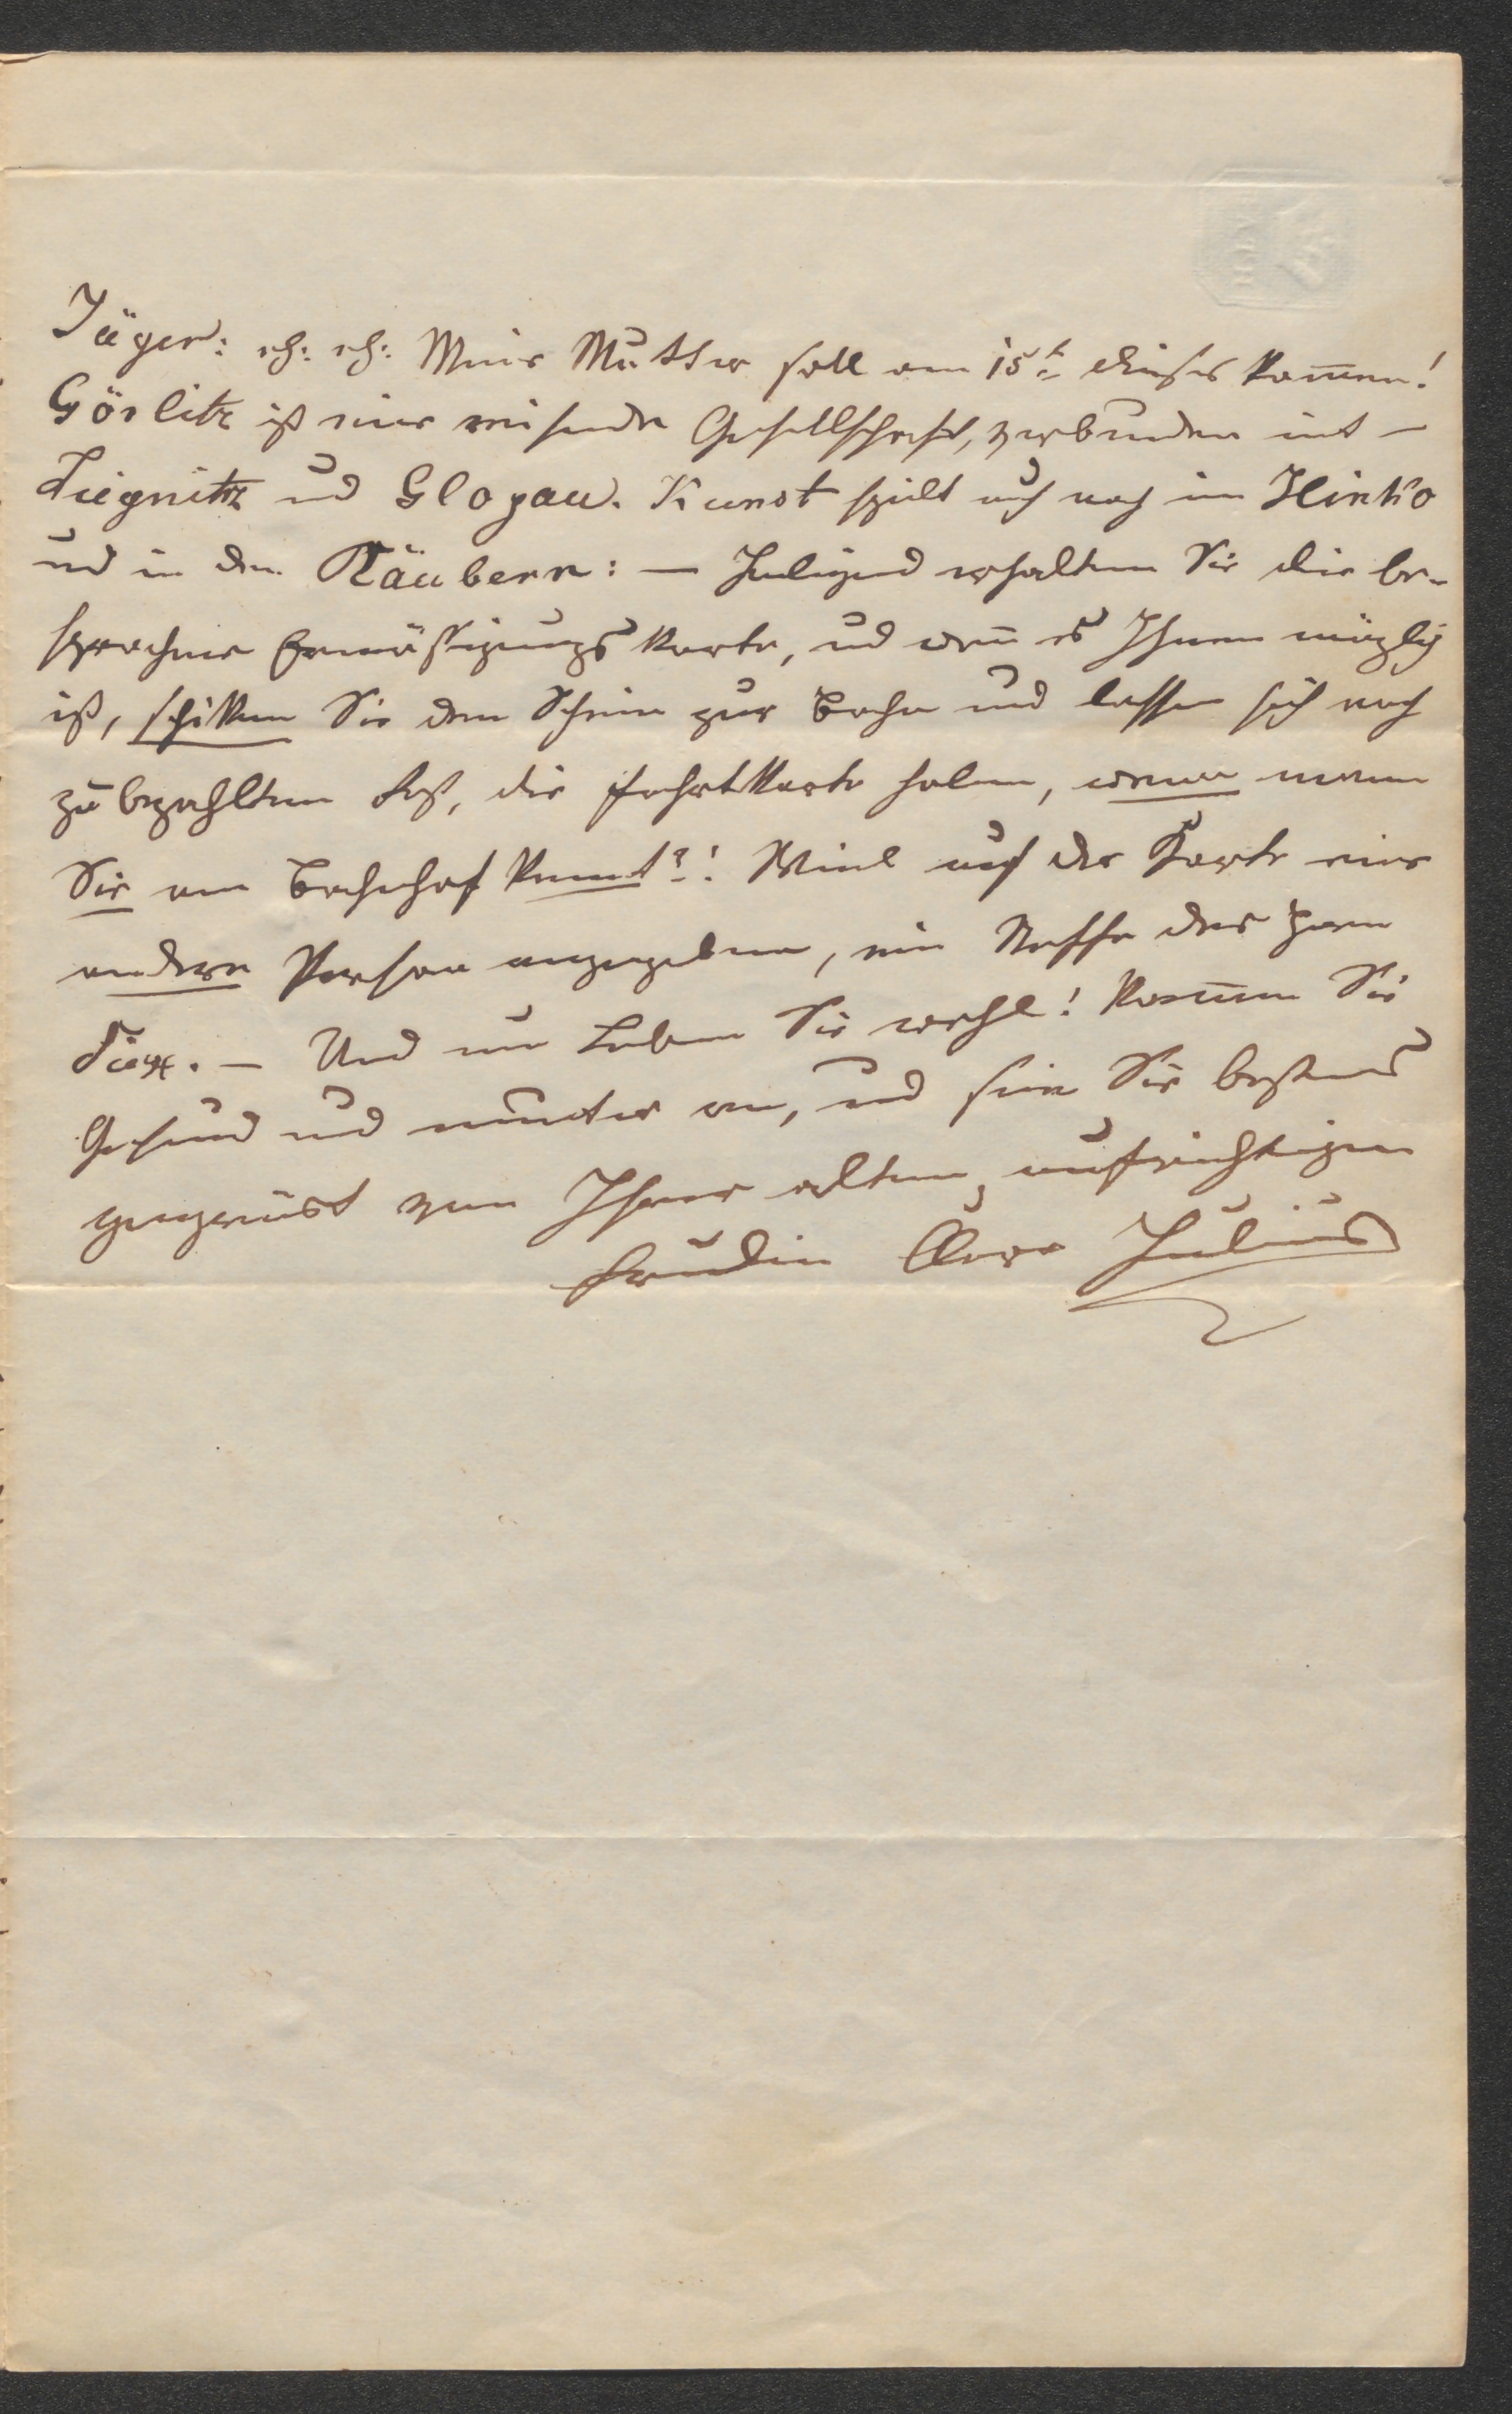 Jäger: etc: etc: Meine Mutter soll am 15t dieses kom̅en!
Görlitz ist eine reisende Gesellschaft, verbunden mit –
Liegnitz und Glogau. Kunst spielt auch noch im Hinko
und in den Räubern: – Inliegend erhalten Sie die be-
sprochene Ermäßigungskarte, und wen̅ es Ihnen möglich
ist, schikken Sie den Schein zur Bahn und lassen sich nach
zu bezahlten Rest, die Fahrtkarte holen, wenn mann
Sie am Bahnhof kennt?! Weil auf der Karte eine
andere Person angegeben, ein Neffe des Herrn
– Und nun Leben Sie wohl! Kom̅en Sie
Gesund und munter an, und sein Sie bestens
gegrüst von Ihrer alten, aufrichtigen
Freudin Clara Julius